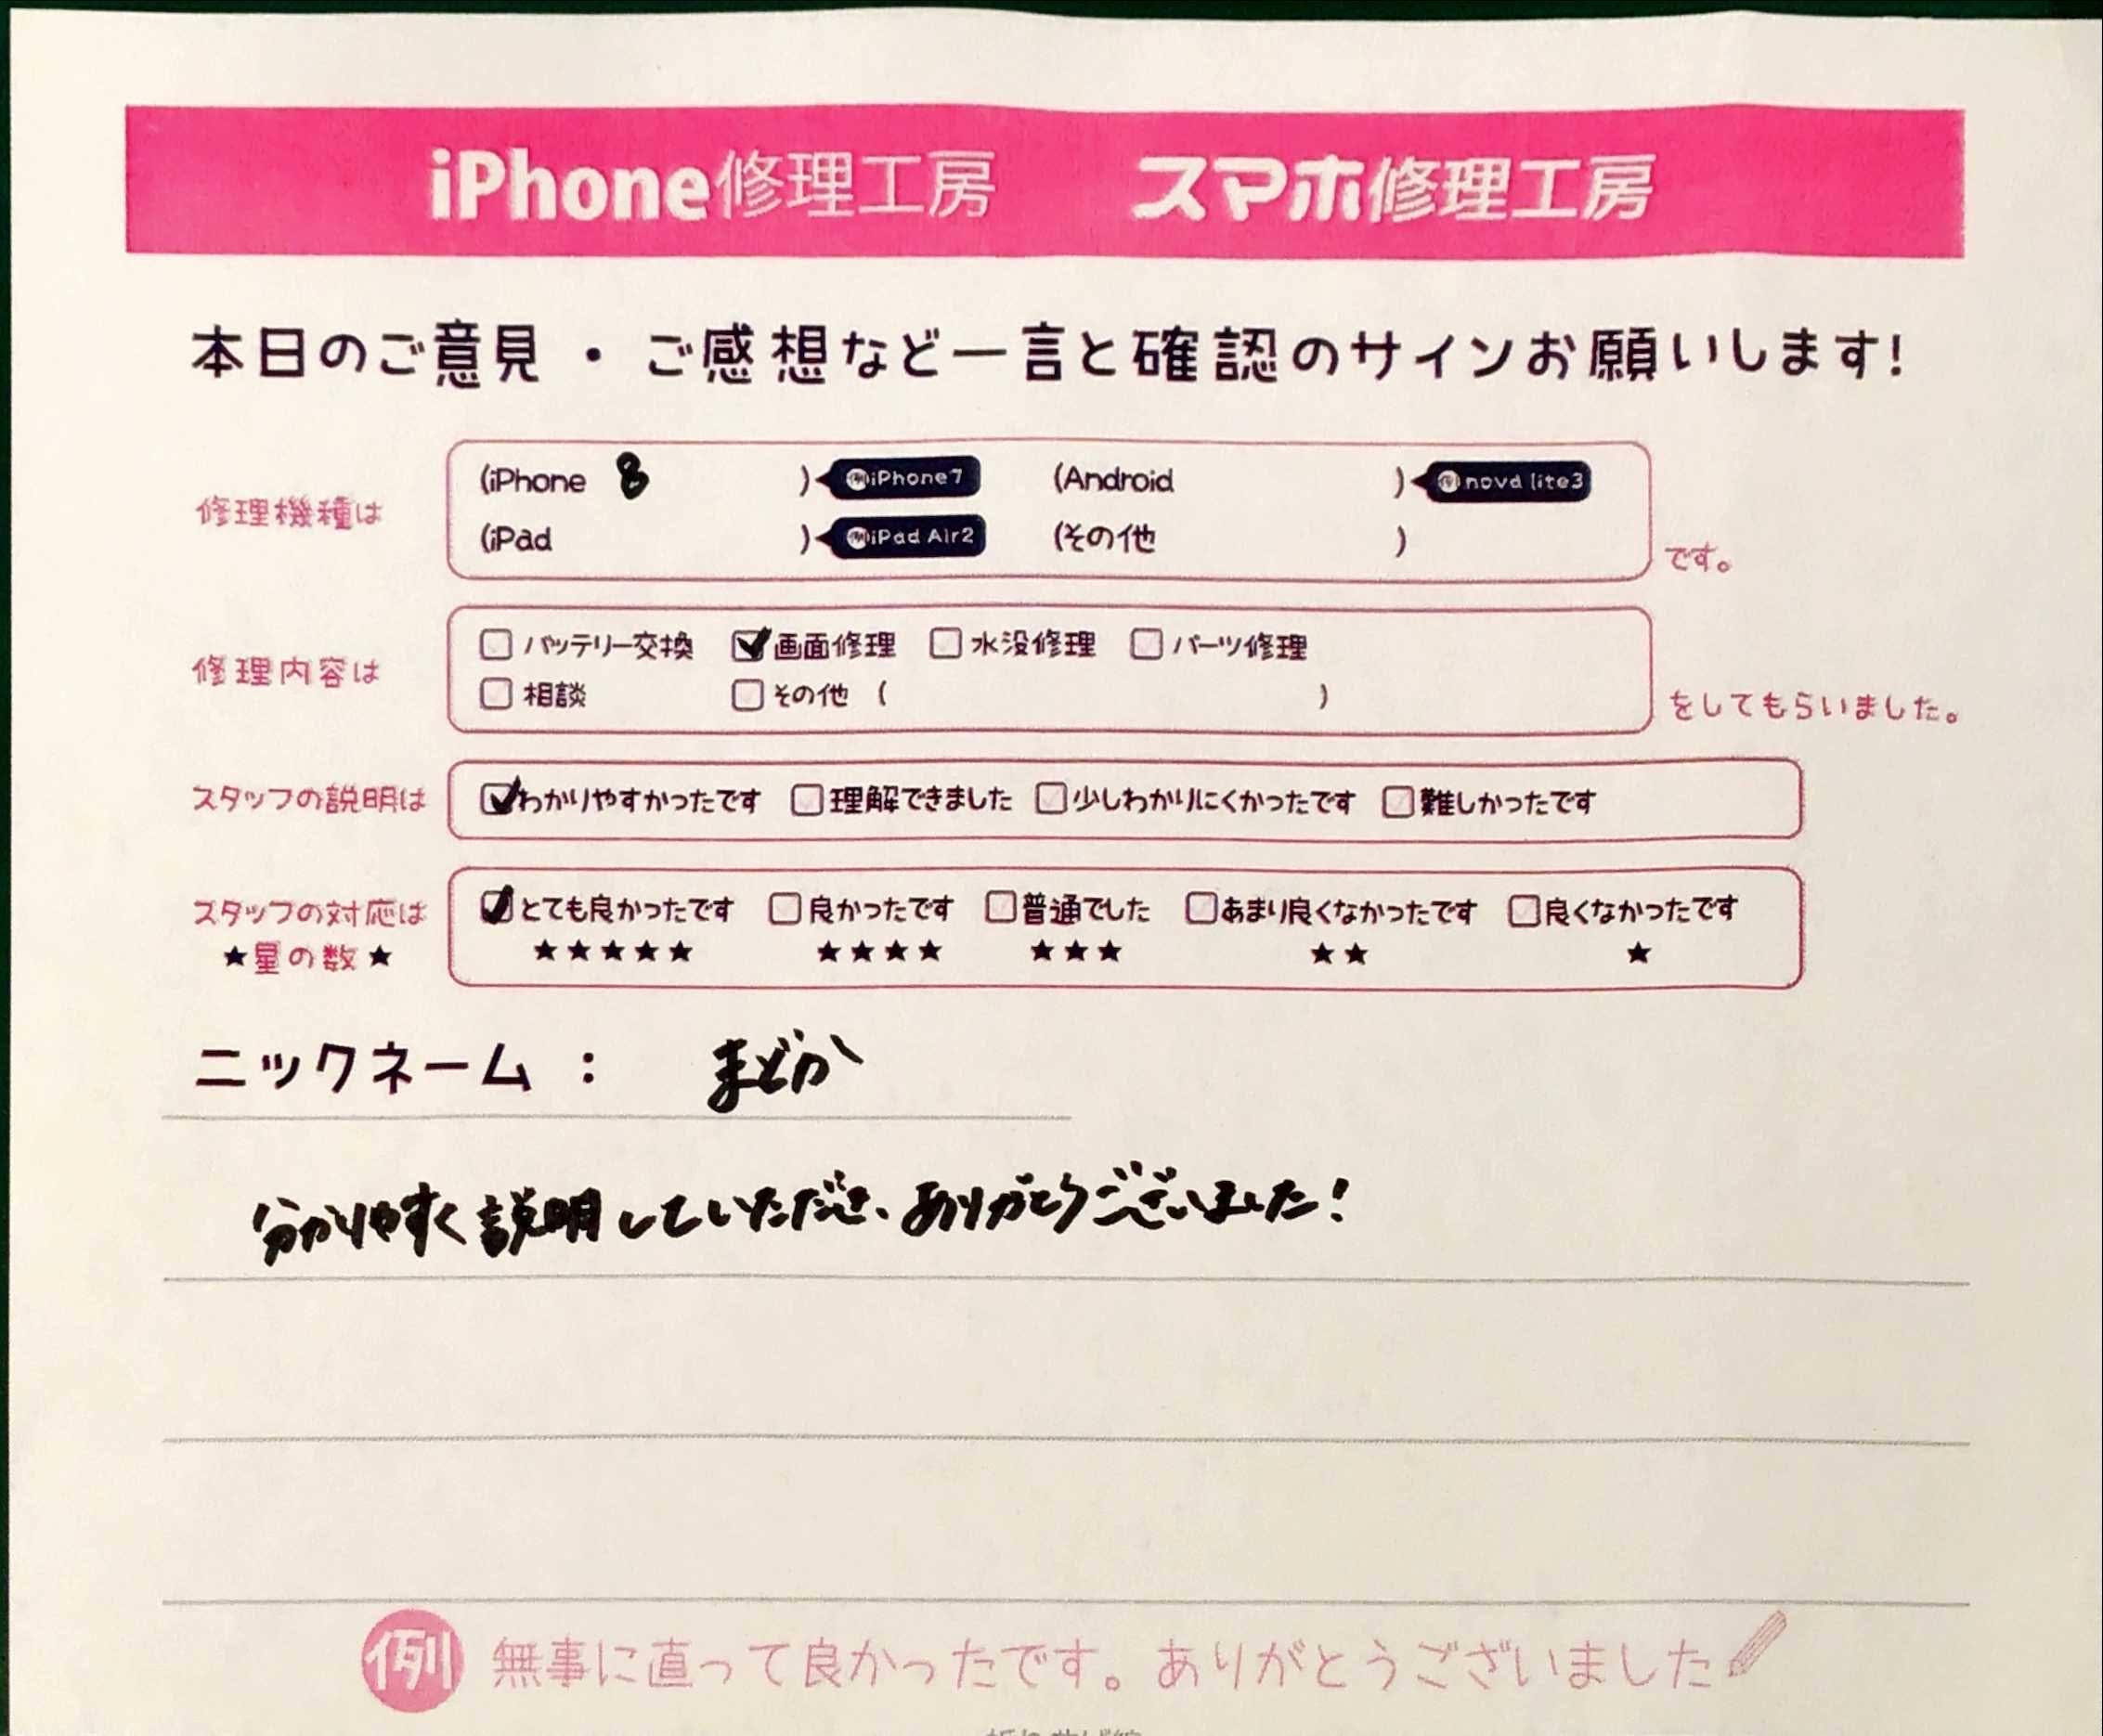 iPhone修理工房 スマホ修理工房
本日のご意見・ご感想など一言と確認のサインお願いします!
修理機種は
(iPhone 8 ) 例iPhone7 (Android ) 例nova lite3
(iPad ) 例iPad Air2 (その他 )
です。
修理内容は
バッテリー交換 画面修理 水没修理 パーツ修理
相談 その他 ( )
をしてもらいました。
スタッフの説明は わかりやすかったです 理解できました 少しわかりにくかったです 難しかったです
スタッフの対応は とても良かったです 良かったです 普通でした あまり良くなかったです 良くなかったです
★星の数★ ★★★★★ ★★★★ ★★★ ★★ ★
ニックネーム : まどか
分かりやすく説明していただき、ありがとうございました!
例 無事に直って良かったです。ありがとうございました